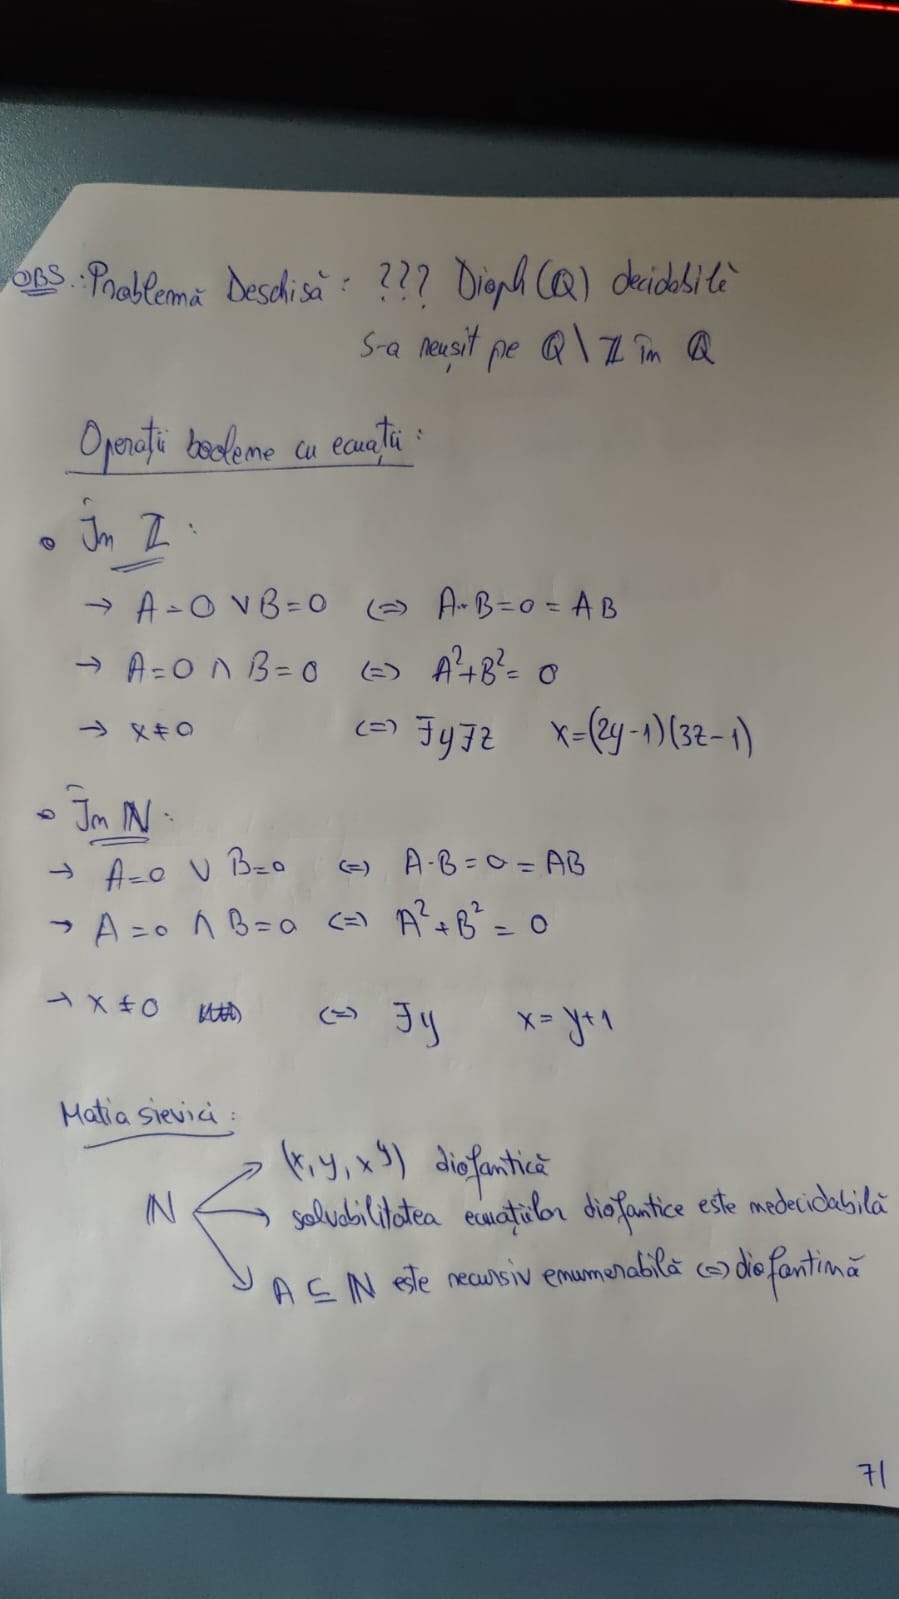 OBS.: Problemă Deschisă: ??? Dioph(Q) decidabilă
S-a reușit pe ℚ\ℤ în ℚ
Operații booleene cu ecuații:
• În ℤ:
→ A=0 ∨ B=0 (=) A·B=0=AB
→ A=0 ∧ B=0 (=) A²+B²=0
→ x≠0 (=) ∃y∃z x=(2y-1)(3z-1)
• În ℕ:
→ A=0 ∨ B=0 (=) A·B=0=AB
→ A=0 ∧ B=0 (=) A²+B²=0
→ x≠0 (=) ∃y x=y+1
Matiasievici:
(x,y,x^y) diofantică
ℕ solvabilitatea ecuațiilor diofantice este nedecidabilă
A ⊆ ℕ este recursiv enumerabilă (=) diofantină
71